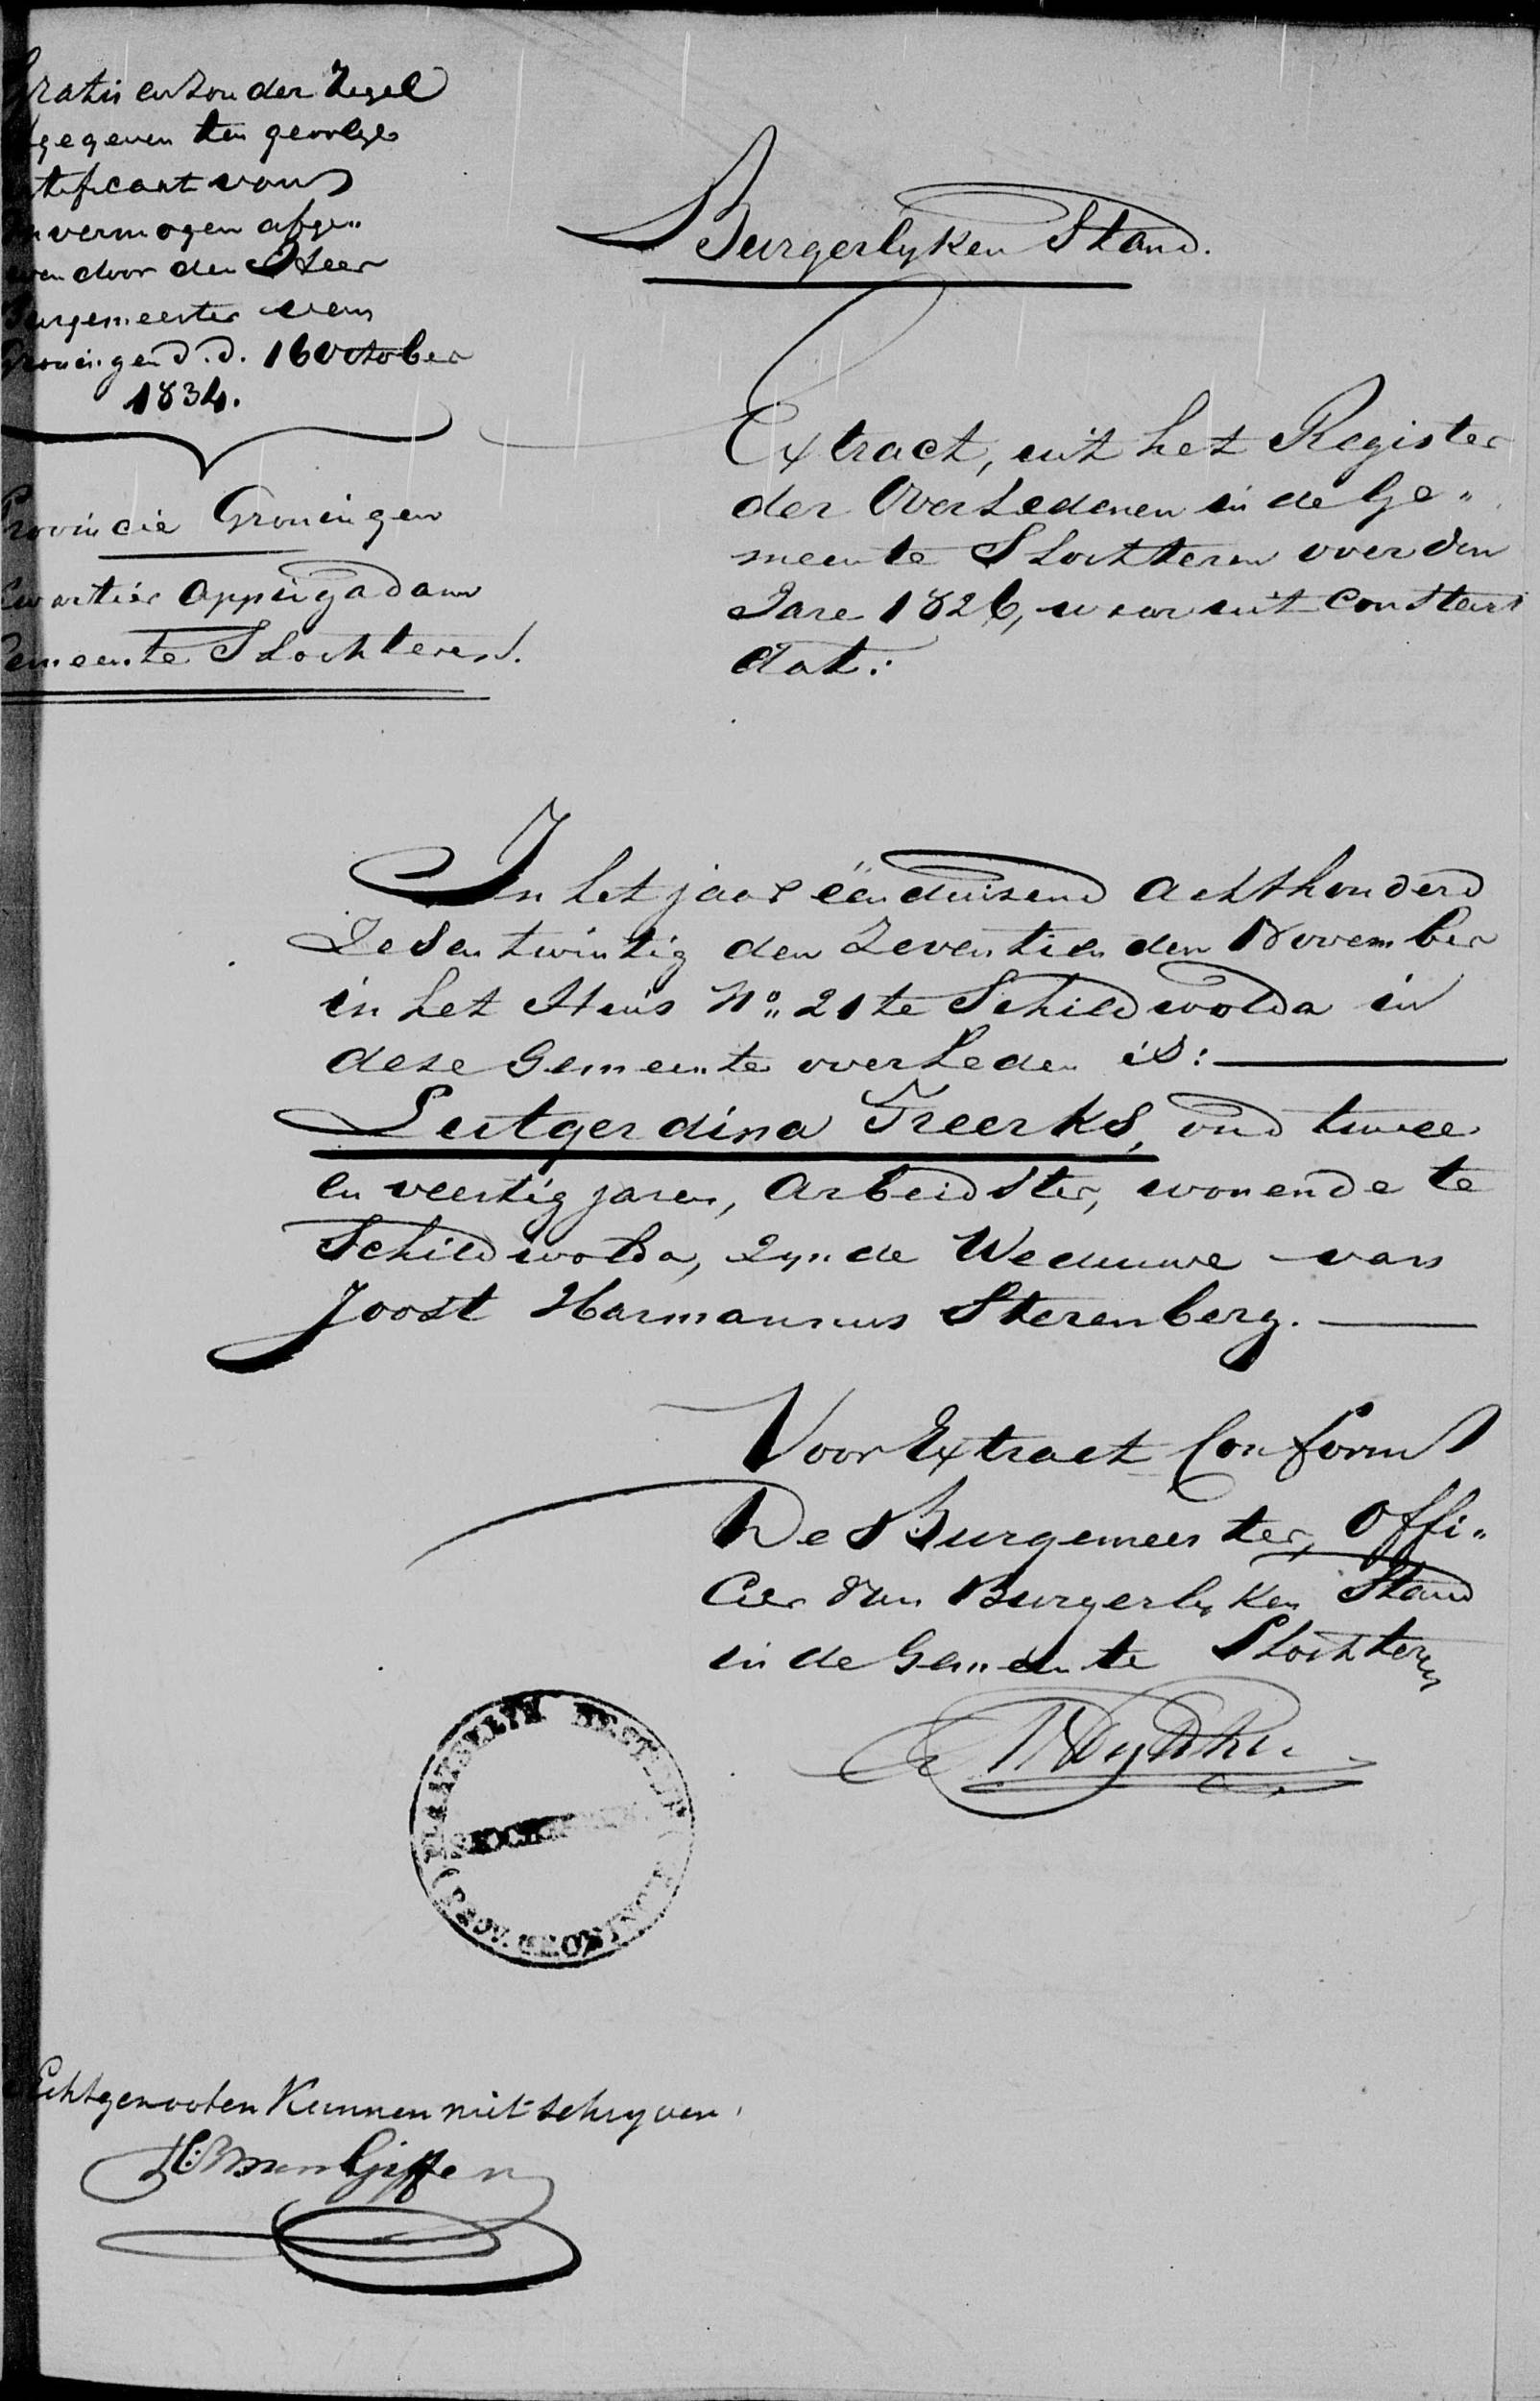 Gratis en zonder Zegel
gegeven ten gevolge
tificaat van
vermogen afge„
ven door den Heer
Burgemeester van
Groningen d.d. 16 October
1834.
Provincie Groningen
Kwartier Appingadam
Gemeente Slochteren.
Burgerlyken Stand.
Extract, uit het Register
der Overledenen in de Ge„
meente Slochteren over den
Jare 1826, waar uit Consteert
dat:
In het jaar ëen duizend achthonderd
Zes en twintig den Zeventienden November
in het Huis No. 21 te Schildwolda in
deze Gemeente overleden is:
Leutgerdina Freerks, oud twee
en veertig jaren, Arbeidster, wonende te
Schildwolda, Zynde Weduwe van
Joost Harmannus Sterenberg.
Voor Extract Conform
De Burgemeester, Offi„
cier van Burgerlyken Stand
in de Gemeente Slochteren
PLAATSELYK BESTUUR
SLOCHTEREN
(PROV. GRONINGEN)
Echtgenooten Kunnen niet schryven.
van Giffen